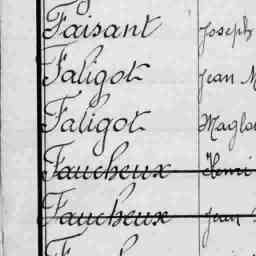 Faisant Joseph
Faligot Jean M
Faligot Maglo
Faucheux Henri
Faucheux Jean